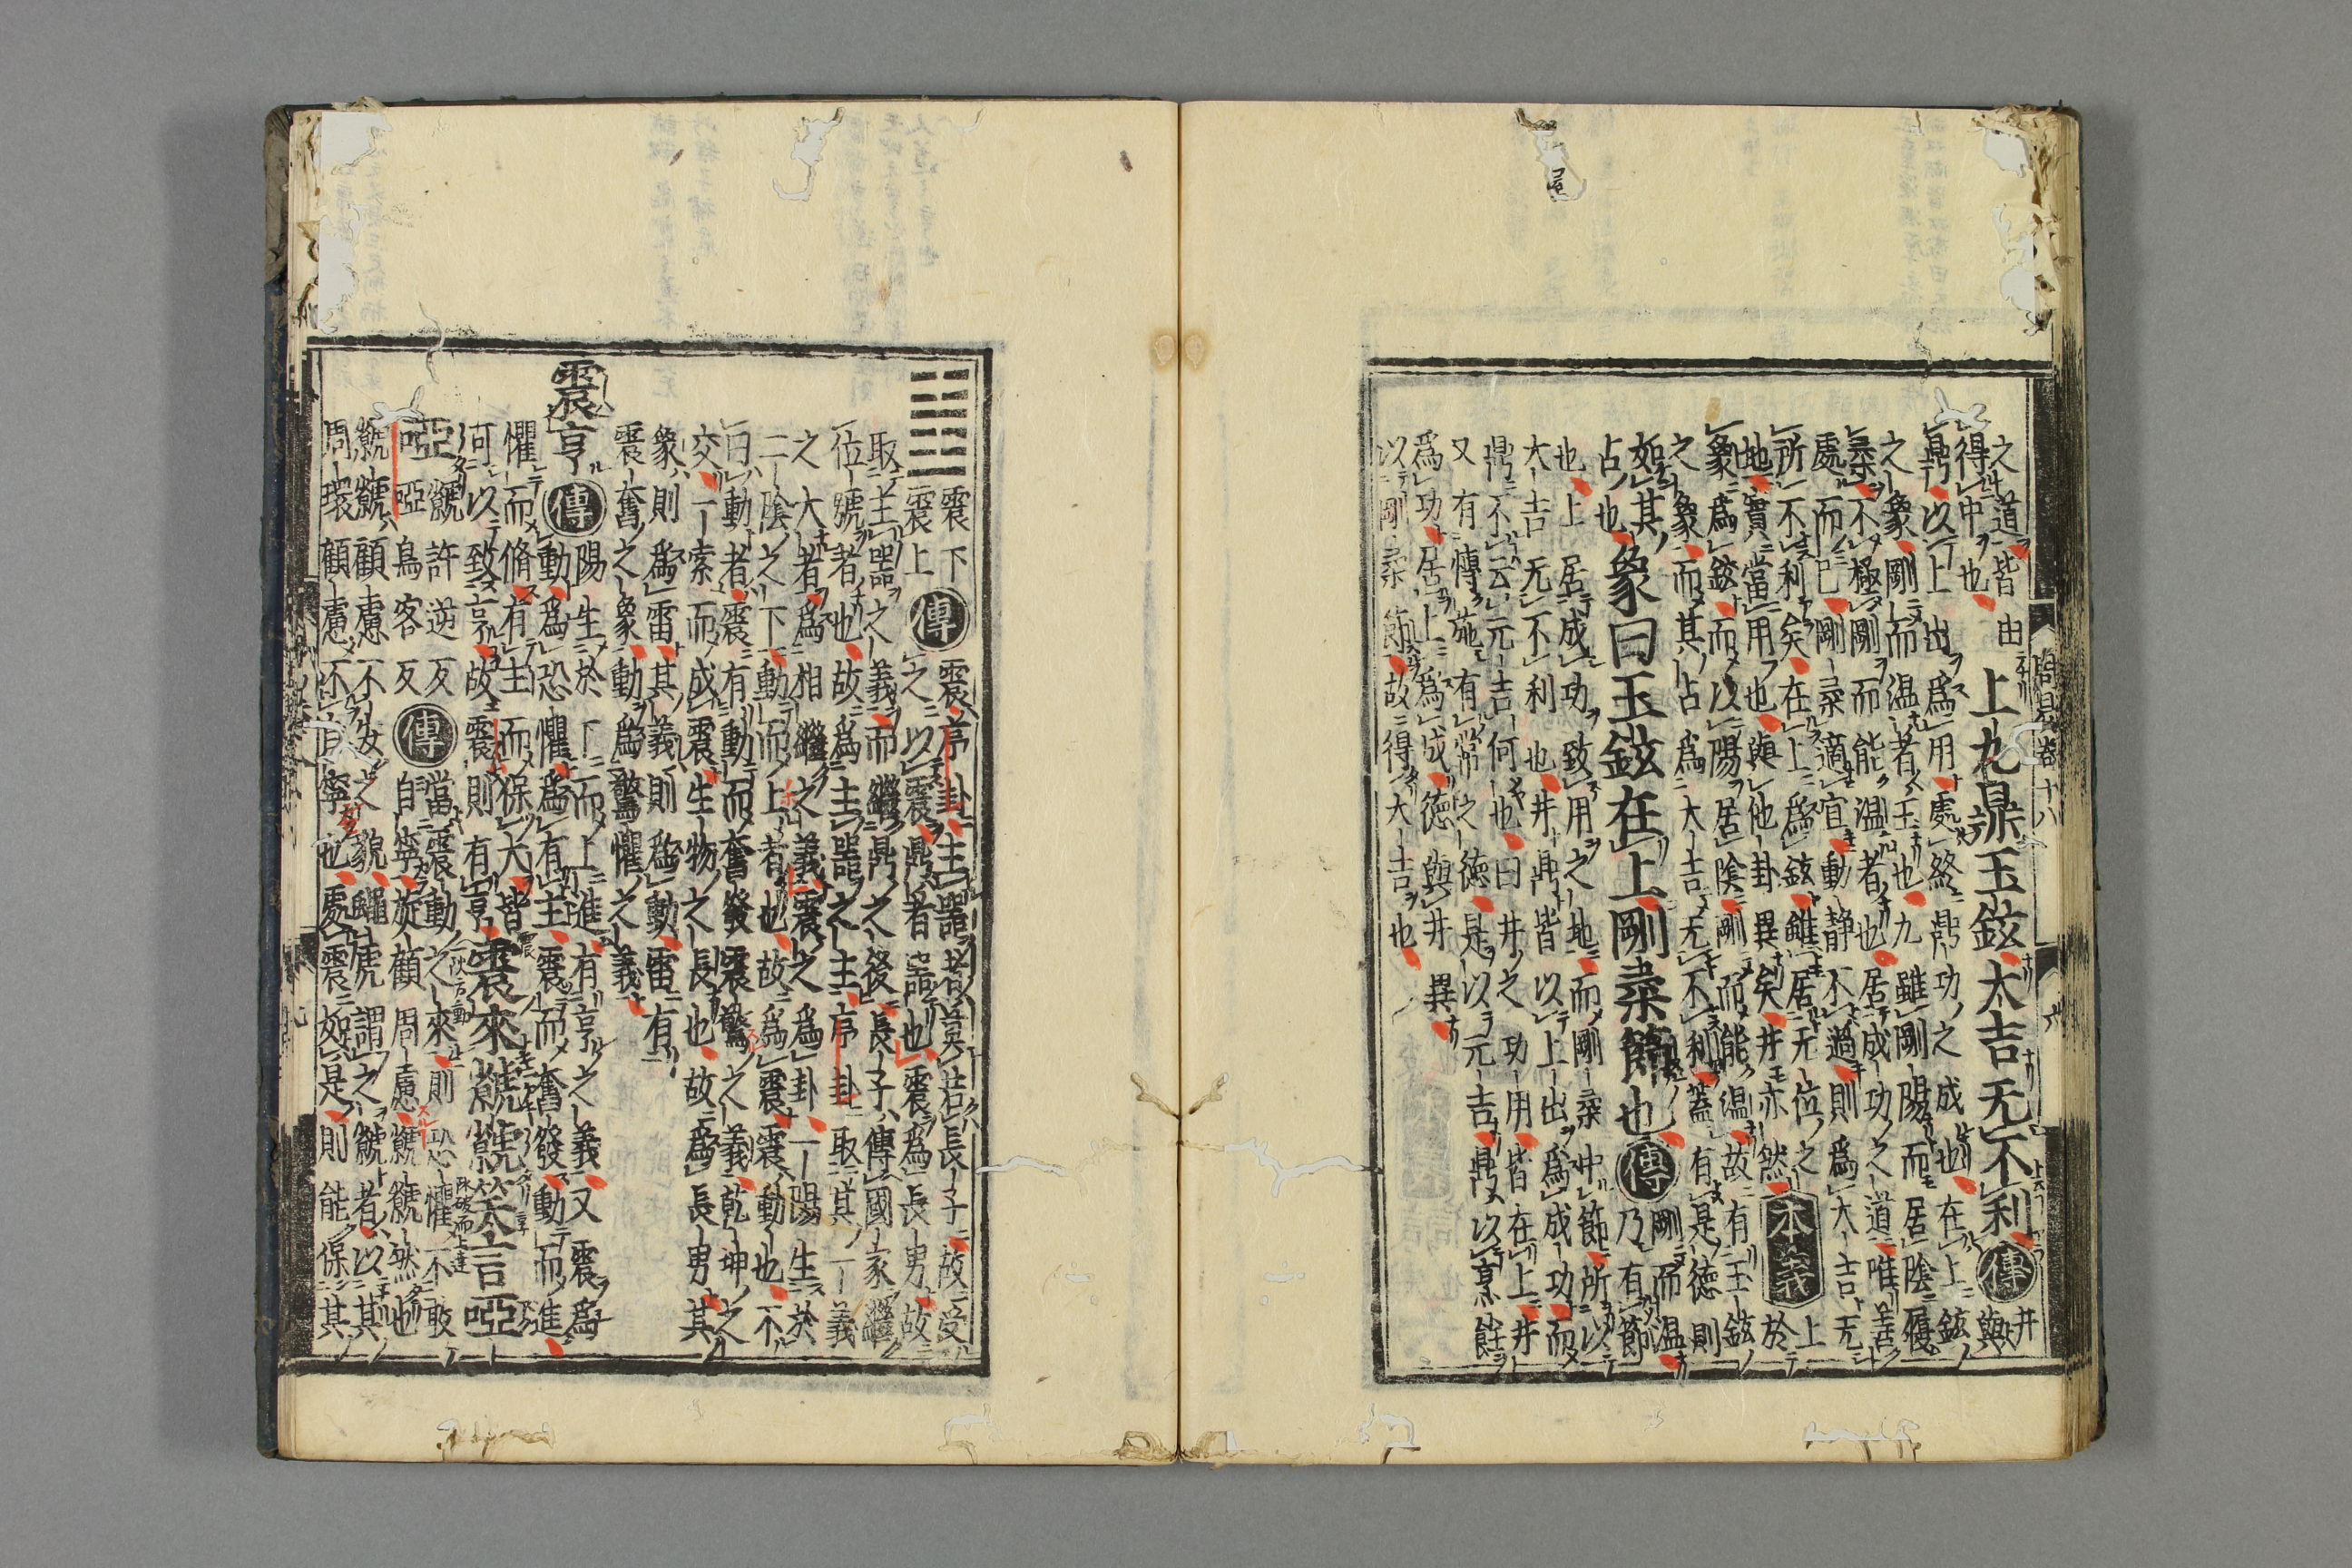 之道皆由
得中也
上九鼎玉鉉大吉无不利傳井與
鼎以上出爲用處終鼎功之成也在上鉉
之象剛而温者玉也九雖剛陽而居陰履
柔不極剛而能温者也居成功之道唯善
處而已剛柔適宜動静不過則爲大吉无
所不利矣在上爲鉉雖居无位之
地實當用也與他卦異矣井亦然本義上於
象爲鉉而以陽居陰剛而能温故有玉鉉
之象而其占爲大吉无不利蓋有是德則
如其
占也
象曰玉鉉在上剛柔節也傳剛而温
乃有節
也上居成功致用之地而剛柔中節所以
大吉无不利也井鼎皆以上出爲成功而
鼎不云元吉何也曰井之功用皆在上井
又有博施有常之德是以元吉鼎以烹飪
爲功居上爲成德與井異
以剛柔節故得大吉也
周易卷十八
六
震下
震上
傳震序卦主器者莫若長子故受
之以震鼎者器也震爲長男故
取主器之義而繼鼎之後長子傳國家繼
位號者也故爲主器之主序卦取其一義
之大者爲相繼之義震之爲卦一陽生於
二陰之下動而上者也故爲震震動也不
曰動者震有動而奮發震驚之義乾坤之
交一索而成震生物之長也故爲長男其
象則爲雷其義則爲動雷有
震奮之象動爲驚懼之義
震亨傳陽生於下而上進有亨之義又震爲
動爲恐懼爲有主震而奮發動而進
懼而脩有主而保大皆
可以致亨故震則有亨
震來虩虩笑言啞
啞虩許逆反
啞烏客反
傳當震動之來則恐懼不敢
自寧旋顧周慮虩虩然也
虩虩顧慮不安之貌蠅虎謂之虩者以其
周環顧慮不自寧也處震如是則能保其